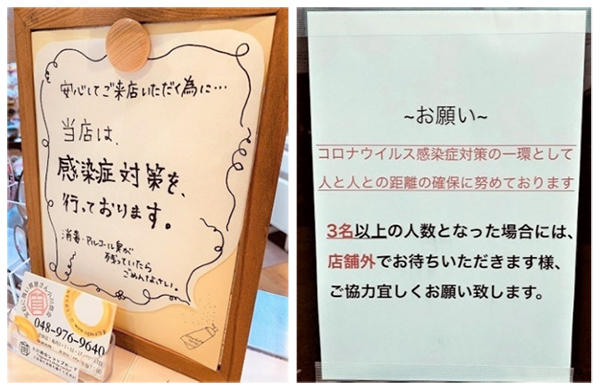 安心してご来店いただく為に…
当店は、
感染症対策を、
行っております。
消毒・アルコール臭が
残っていたら
ごめんなさい。
048-976-9640
~お願い~
コロナウイルス感染症対策の一環として
人と人との距離の確保に努めております
3名以上の人数となった場合には、
店舗外でお待ちいただきます様、
ご協力宜しくお願い致します。